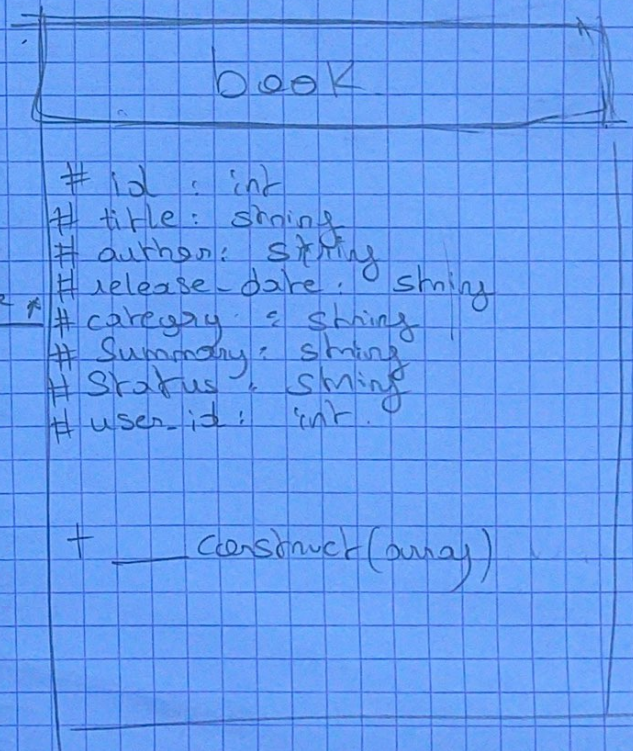 book
# id : int
# title : string
# author : string
# release_date : string
*
# category : string
# Summary : string
# Status : string
# user_id : int
+ __construct(array)